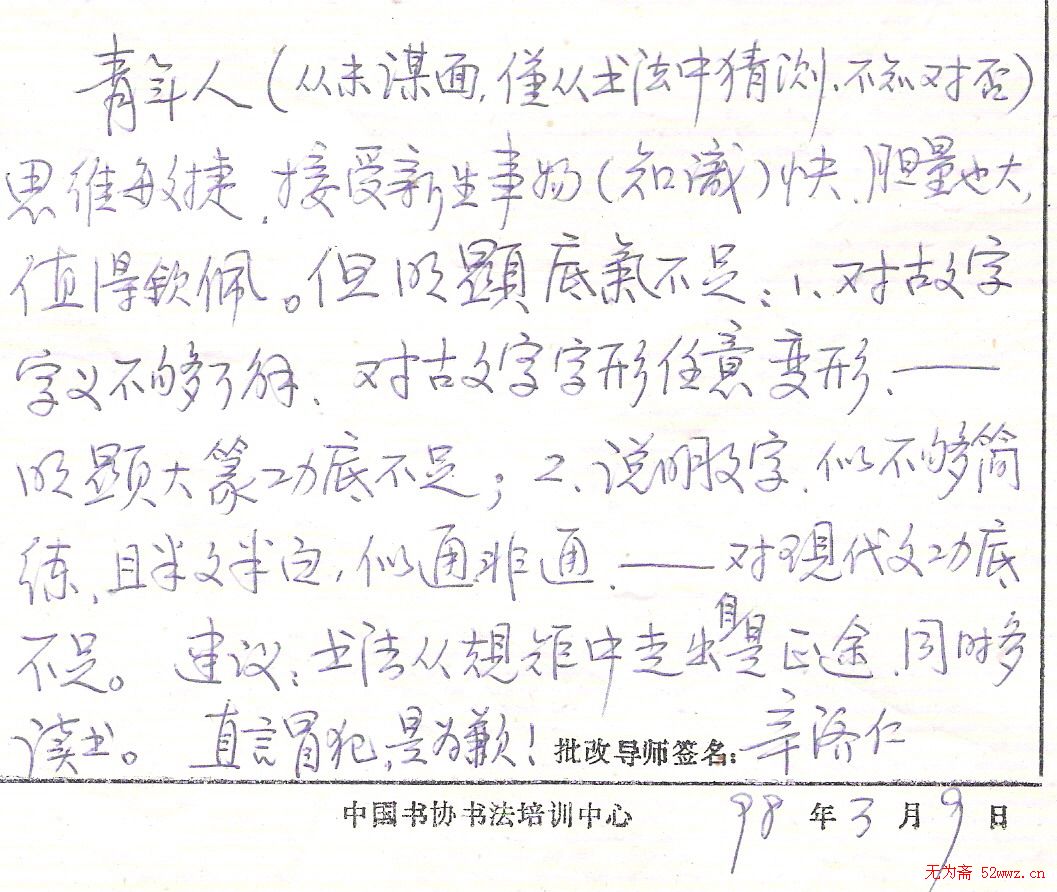 青年人(从未谋面,僅从书法中猜测,不知对否)
思维敏捷,接受新生事物(知識)快、胆量也大,
值得钦佩。但明顯底氣不足:1、对古文字
字义不够了解、对古文字字形任意变形、——
明顯大篆功底不足;2、说明文字、似不够简
练,且半文半白,似通非通、——对现代文功底
不足。 建议:书法从規矩中走出自是正途,同时多
读书。 直言冒犯,是为歉! 批改导师签名:辛济仁
中国书协书法培训中心 98年3月9日
无为斋 52wwz.cn